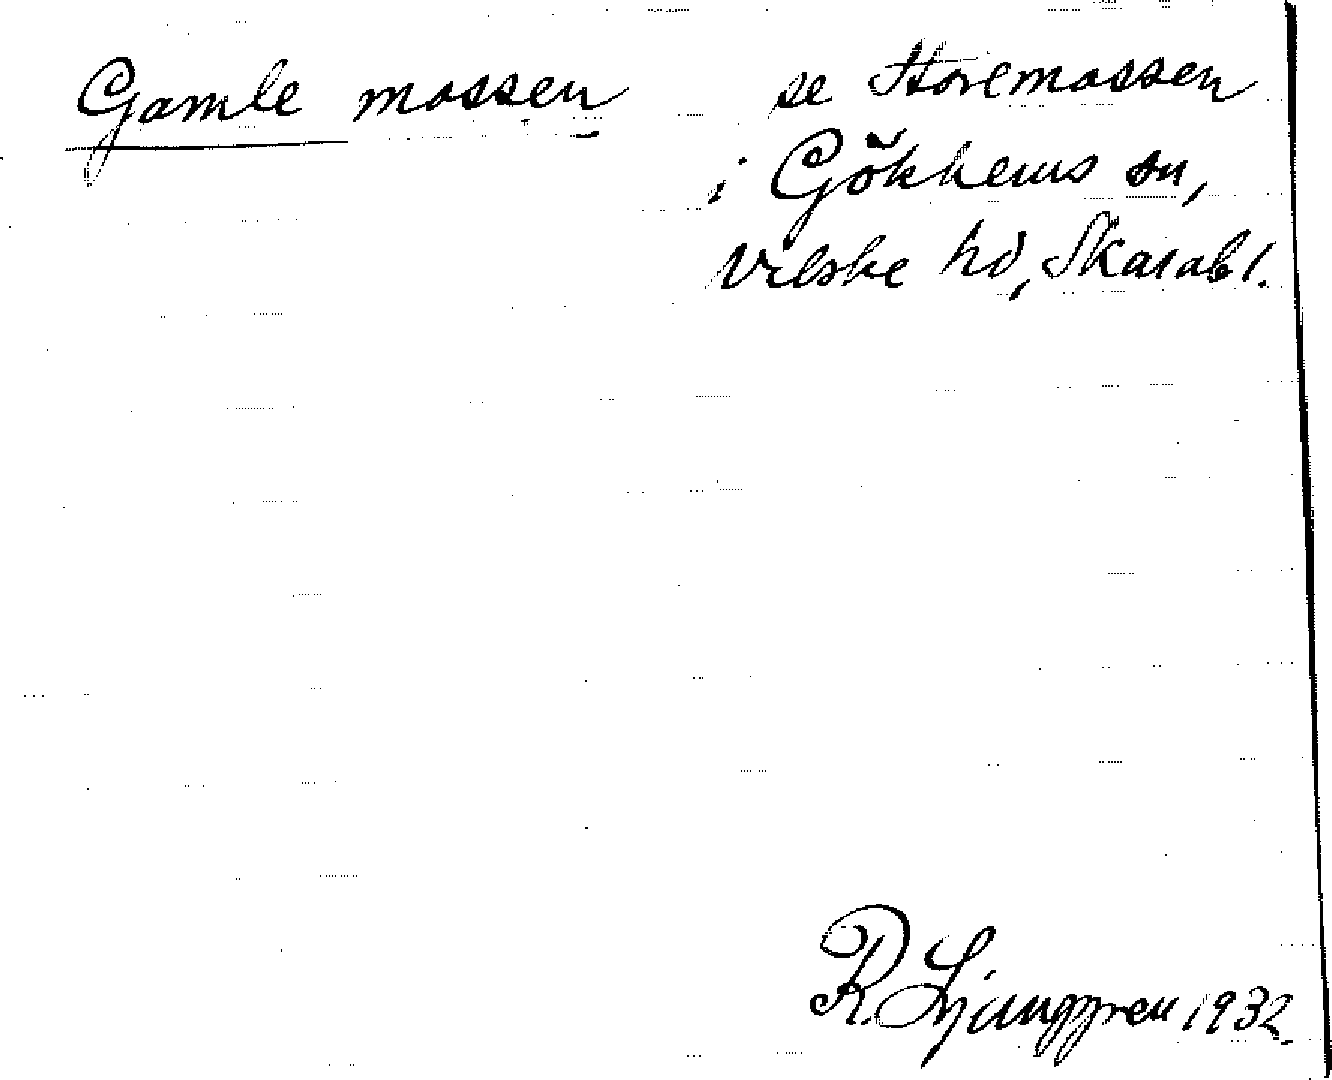 Gamle mossen se Storemossen
i Gökhems sn,
Vilske hd, Skarab l.
R. Ljunggren 1932.